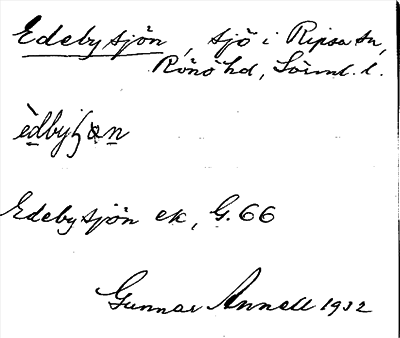 Edebysjön, sjö i Ripsa sn,
Rönö hd, Sörml. l.
Edebysjön ek, G. 66
Gunnar Annell 1932